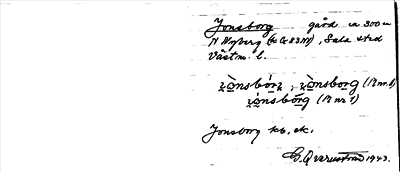 Jonsborg gård ca 300 m
N Nyberg (be G 83 NV), Sala stad
Västm. l.
jònsbórj, jònsborg (R nr 1)
jónsbórg (R nr 1)
Jonsborg kb, ek.
G. Qvarnström 1943.